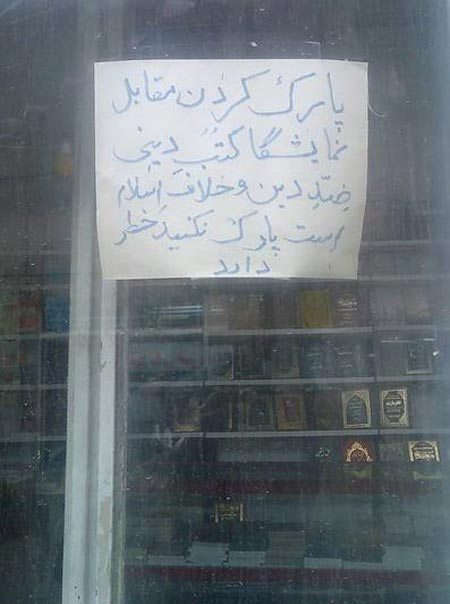 پارک کردن مقابل
نمایشگا کتب دینی
ضدّ دین و خلاف اسلام
است پارک نکنید خطر
دارد